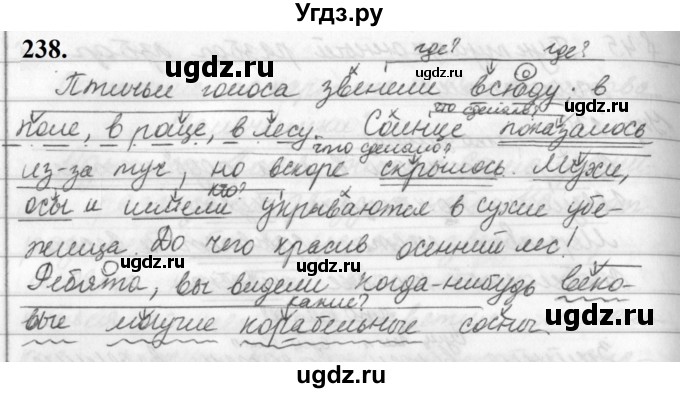 Угдз.ру
238.
где? где?
Птичьи голоса звенели всюду: в
что сделало?
поле, в роще, в лесу. Солнце показалось
что сделало?
из-за туч, но вскоре скрылось. Мухи,
кто?
осы и шмели укрываются в сухие убе-
жища. До чего красив осенний лес!
Ребята, вы видели когда-нибудь веко-
какие?
вые могучие корабельные сосны.
ugdz.ru ugdz.ru
ugdz.ru ugdz.ru
ugdz.ru ugdz.ru
ugdz.ru ugdz.ru
ugdz.ru